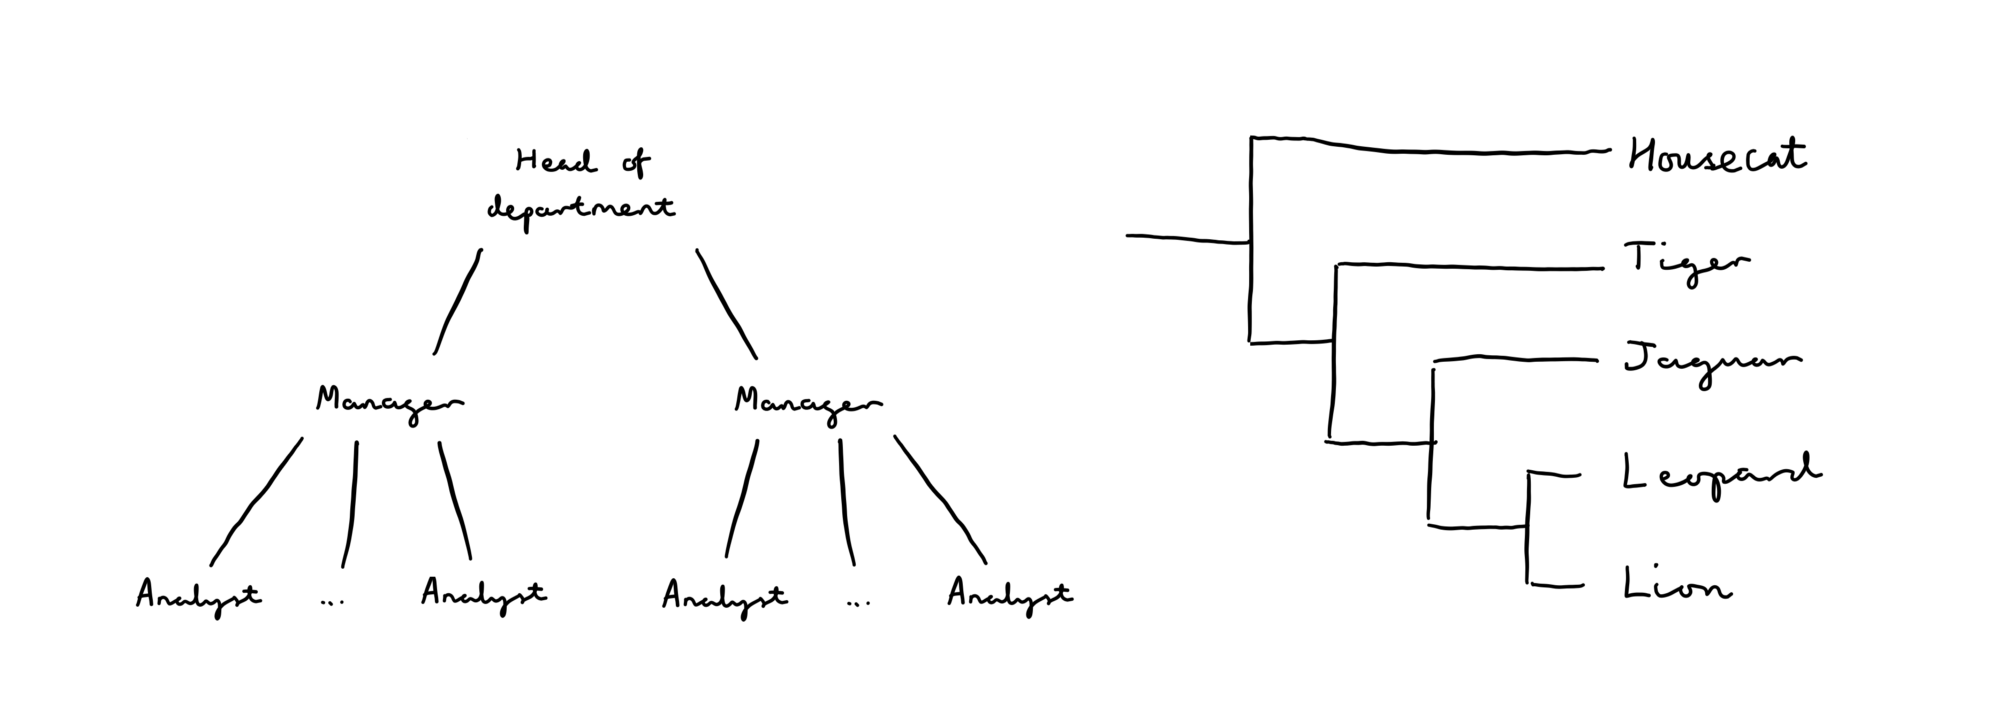 Head of
department
Manager
Manager
Analyst ... Analyst
Analyst ... Analyst
Housecat
Tiger
Jaguar
Leopard
Lion